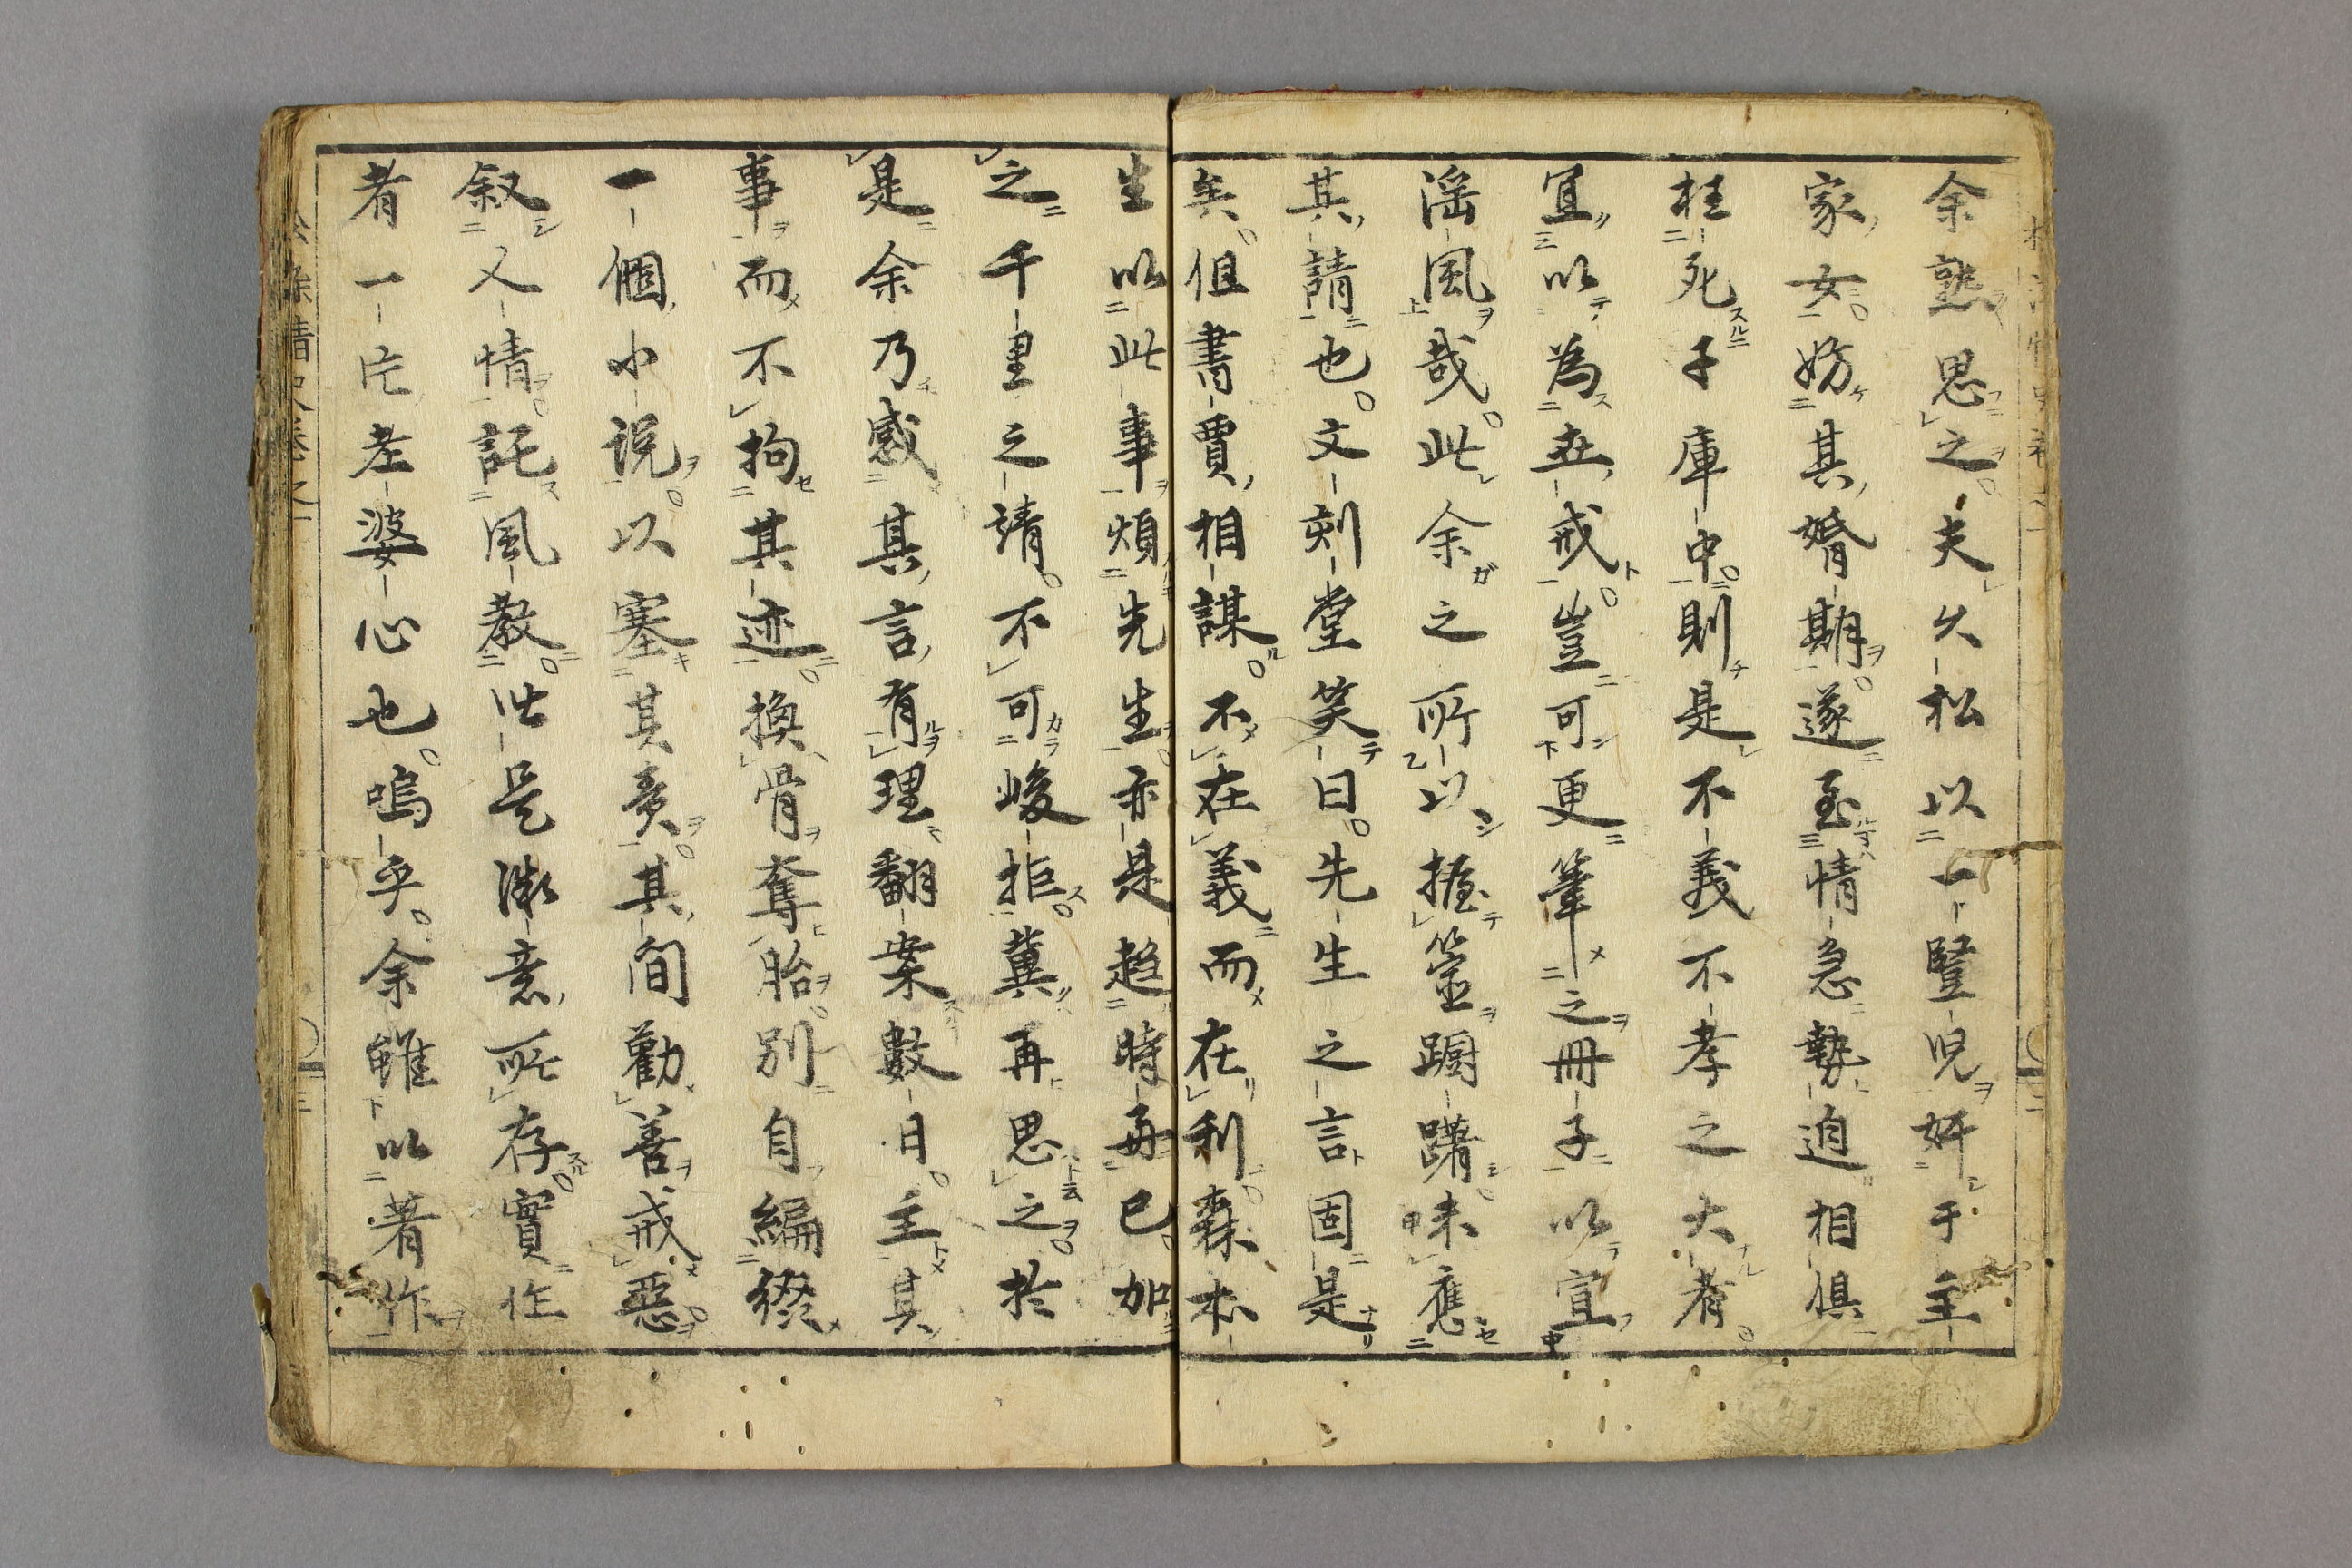 余熟思之夫久松以一豎児奸于主
家女妨其婚期遂至情急勢迫相俱
枉死于庫中則是不義不孝之大者
宜以為世戒豈可更筆之冊子以宣
淫風哉此余之所以握箠躕躇未應
其請也文刻堂笑曰先生之言固是
矣但書賈相謀不在義而在利森本
生以此事煩先生亦是趁時再已加
之千里之請不可峻拒冀再思之於
是余乃感其言有理翻案數日主其
事而不拘其迹換骨奪胎別自編綴
一個小説以塞其責其間勸善戒惡
叙人情託風教此是微意所存實作
者一片老婆心也嗚乎余雖以著作